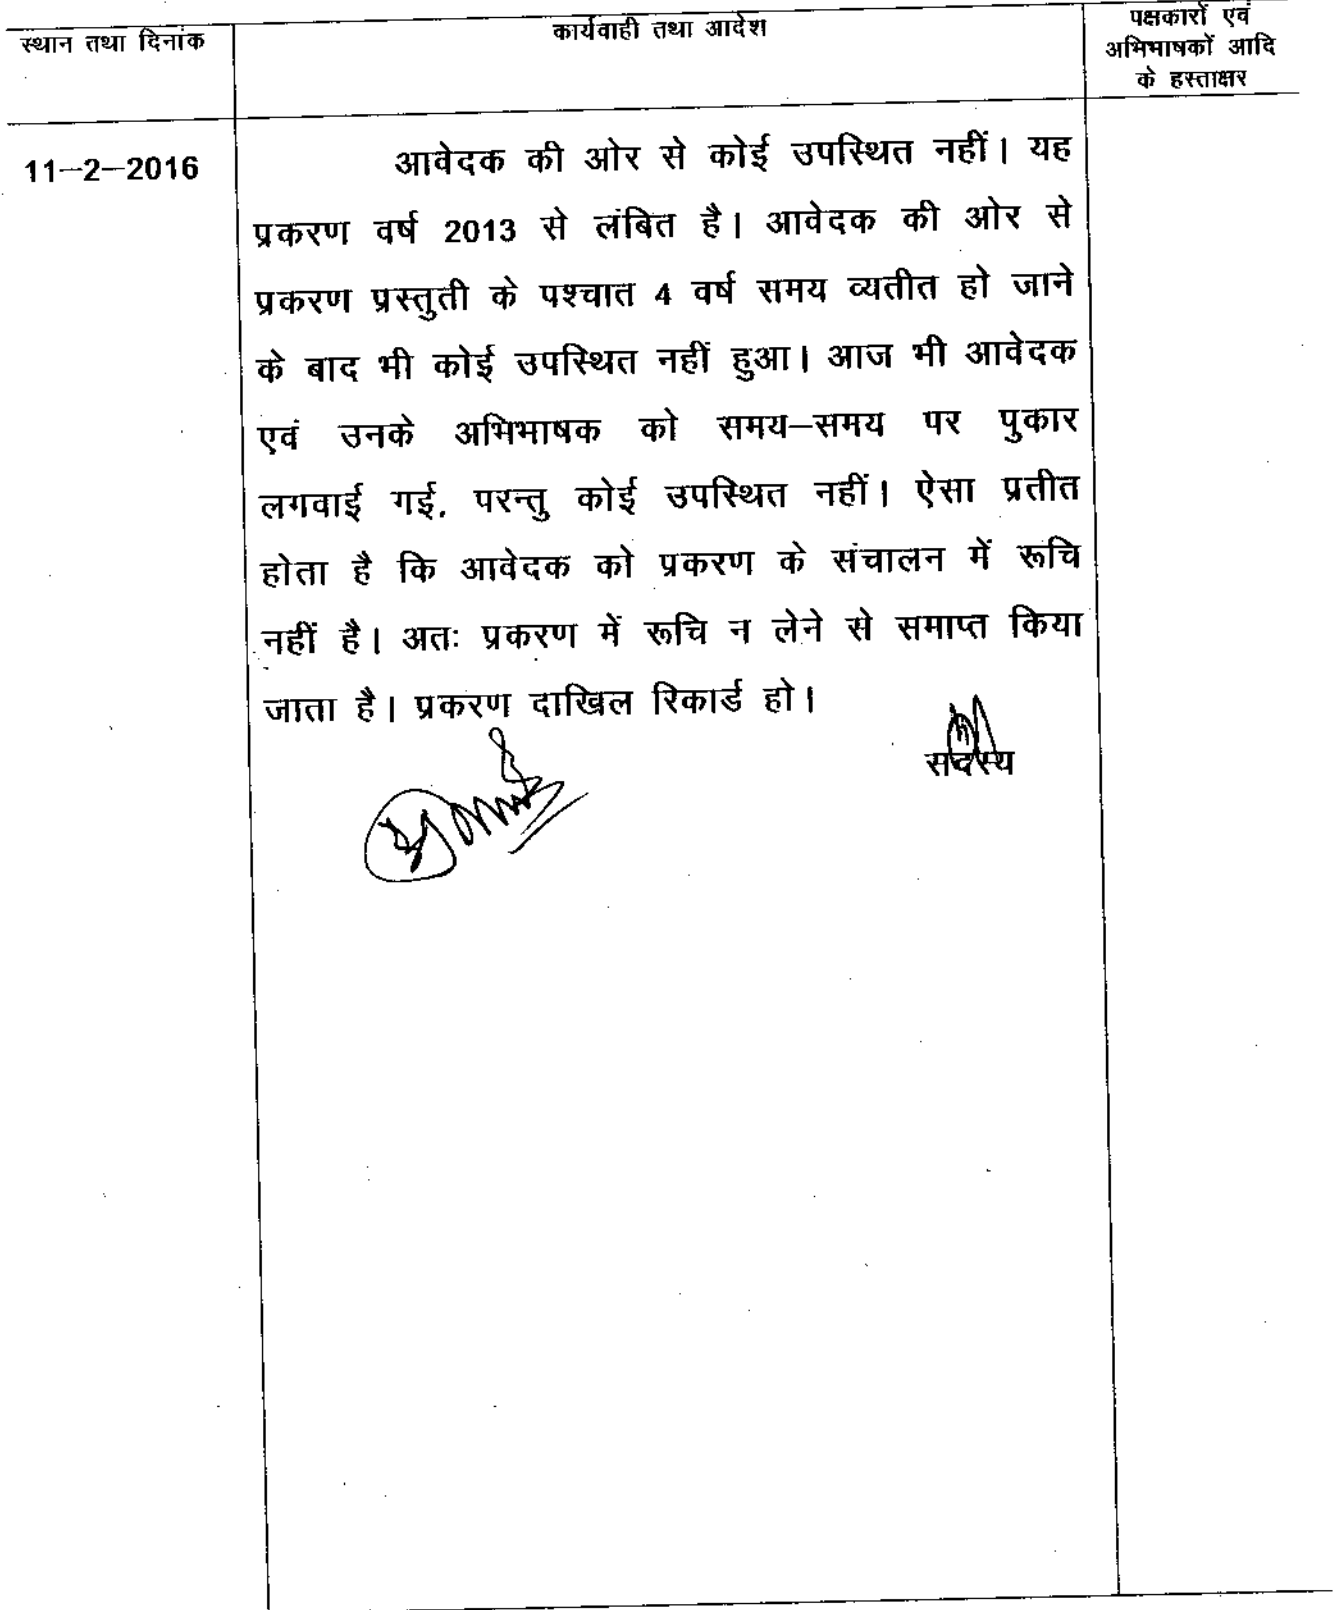 स्थान तथा दिनांक
कार्यवाही तथा आदेश
पक्षकारों एवं
अभिभाषकों आदि
के हस्ताक्षर
11–2–2016
आवेदक की ओर से कोई उपस्थित नहीं। यह
प्रकरण वर्ष 2013 से लंबित है। आवेदक की ओर से
प्रकरण प्रस्तुती के पश्चात 4 वर्ष समय व्यतीत हो जाने
के बाद भी कोई उपस्थित नहीं हुआ। आज भी आवेदक
एवं उनके अभिभाषक को समय–समय पर पुकार
लगवाई गई, परन्तु कोई उपस्थित नहीं। ऐसा प्रतीत
होता है कि आवेदक को प्रकरण के संचालन में रूचि
नहीं है। अतः प्रकरण में रूचि न लेने से समाप्त किया
जाता है। प्रकरण दाखिल रिकार्ड हो।
सदस्य